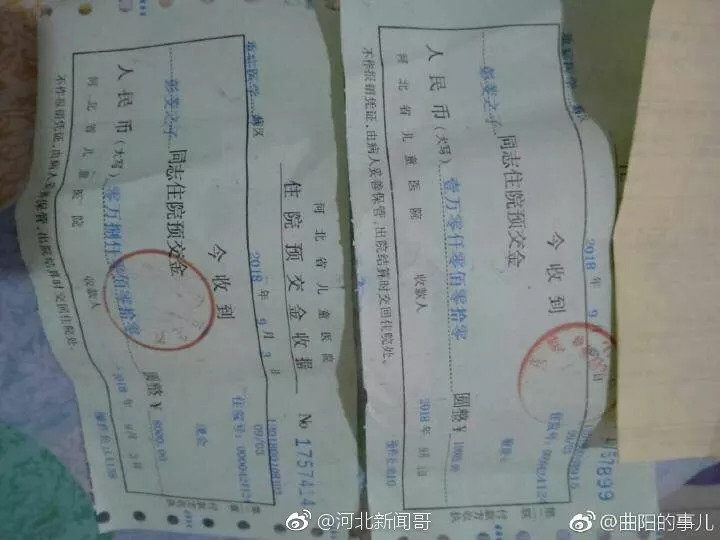 河北省儿童医院
住院预交金收据
No 1757454
2018 年 9 月 3 日
重症医学 病区
今收到
彭姜之子 同志住院预交金
人民币（大写）零万捌仟零佰零拾零 圆整￥ 8000.00
河北省儿童医院 收款人
2018 年
不作报销凭证，由病人妥善保管，出院结算时交回住院处。
现金
09/03
住院号：
57899
2018 年 9
日
重症医学 病区
今收到
彭姜之子 同志住院预交金
人民币（大写）壹万零仟零佰零拾零 圆整￥
河北省儿童医院 收款人
2018 年
不作报销凭证，由病人妥善保管，出院结算时交回住院处。
住院号：
@河北新闻哥
@曲阳的事儿